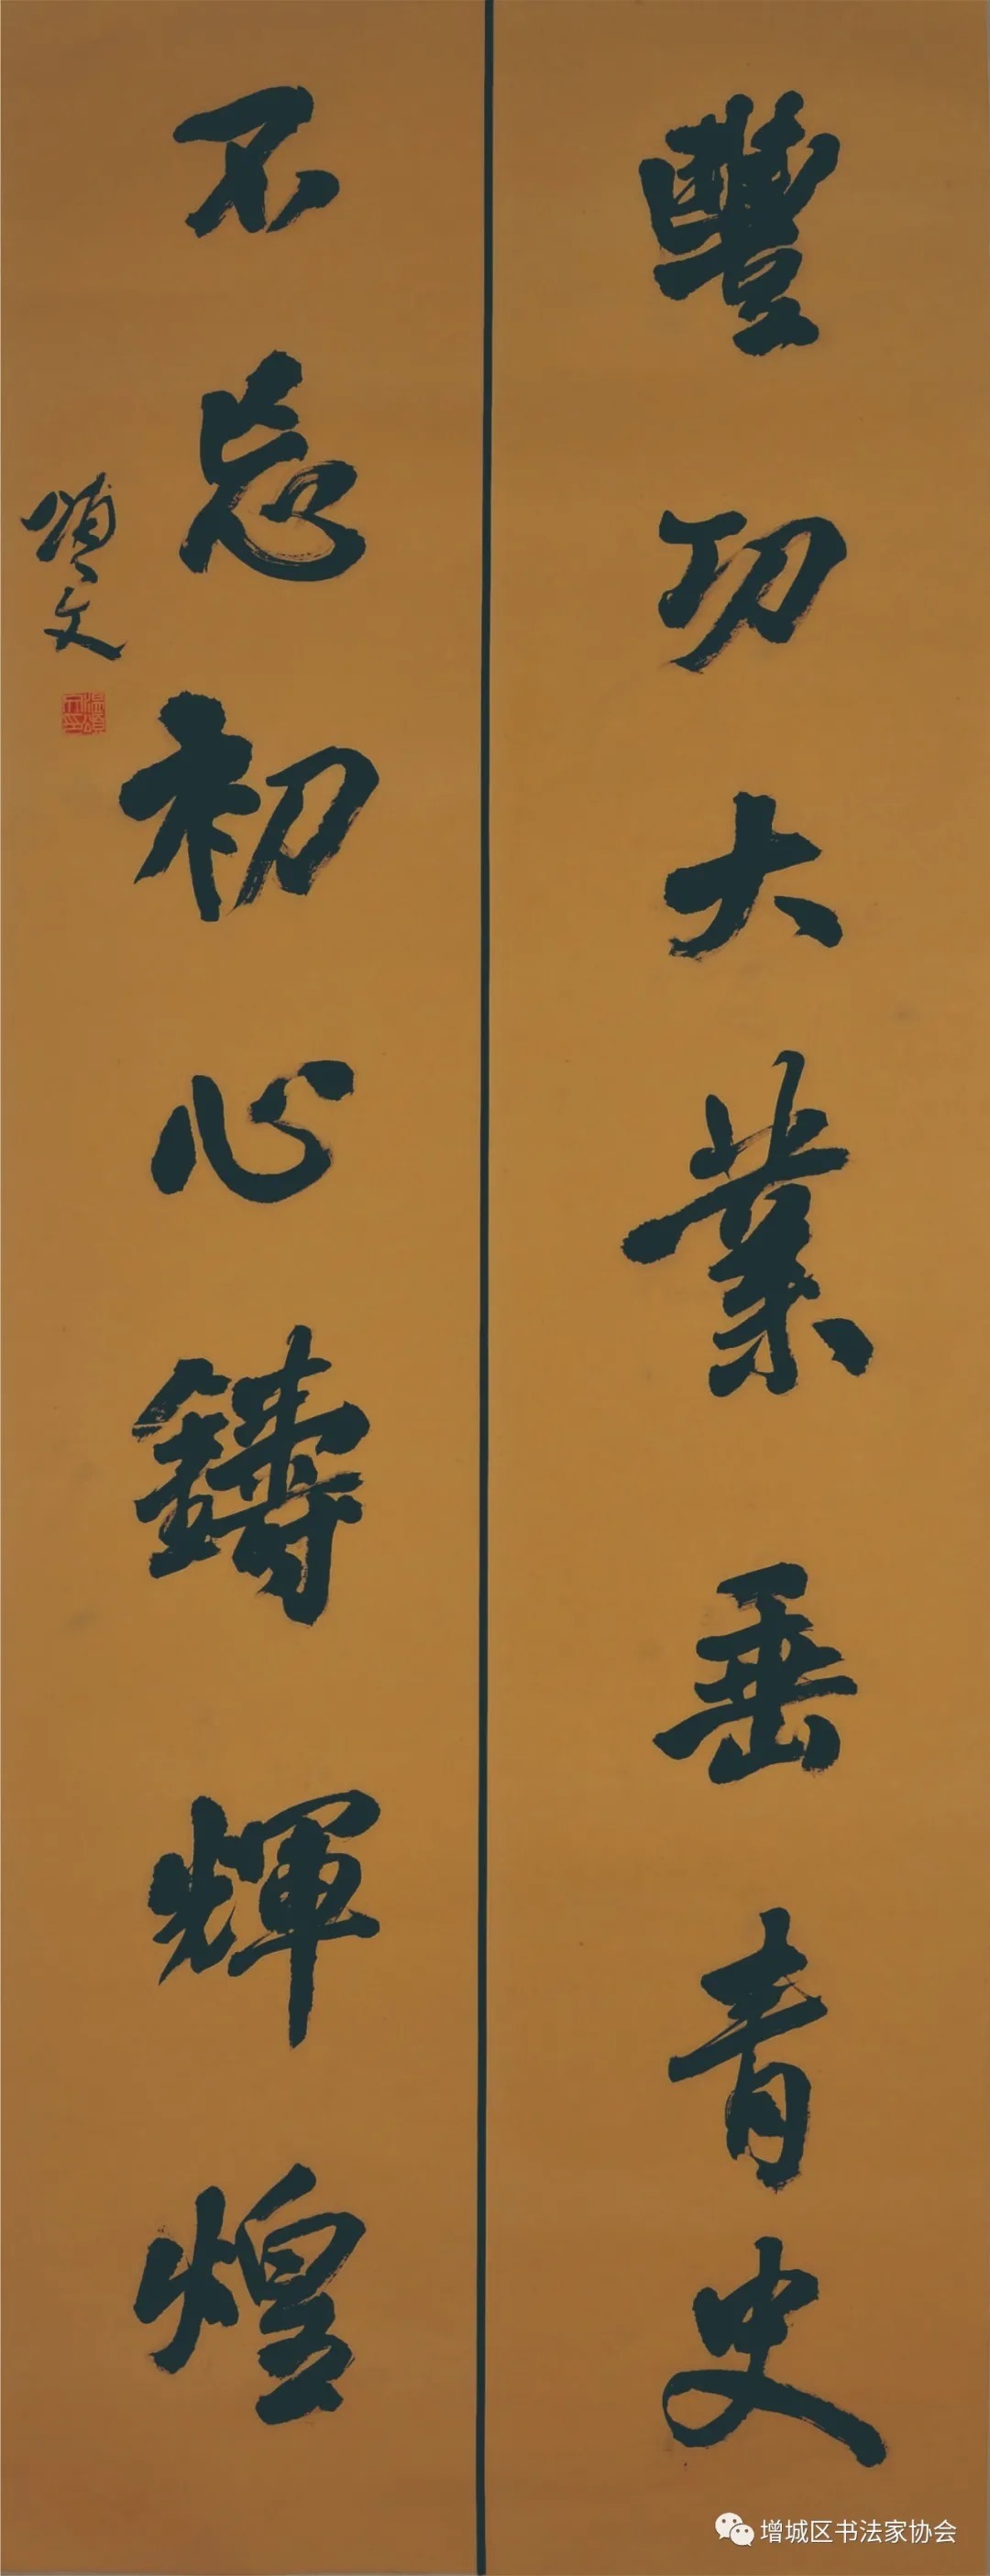 豐功大業垂青史
不忘初心鑄輝煌
頌文
增城区书法家协会